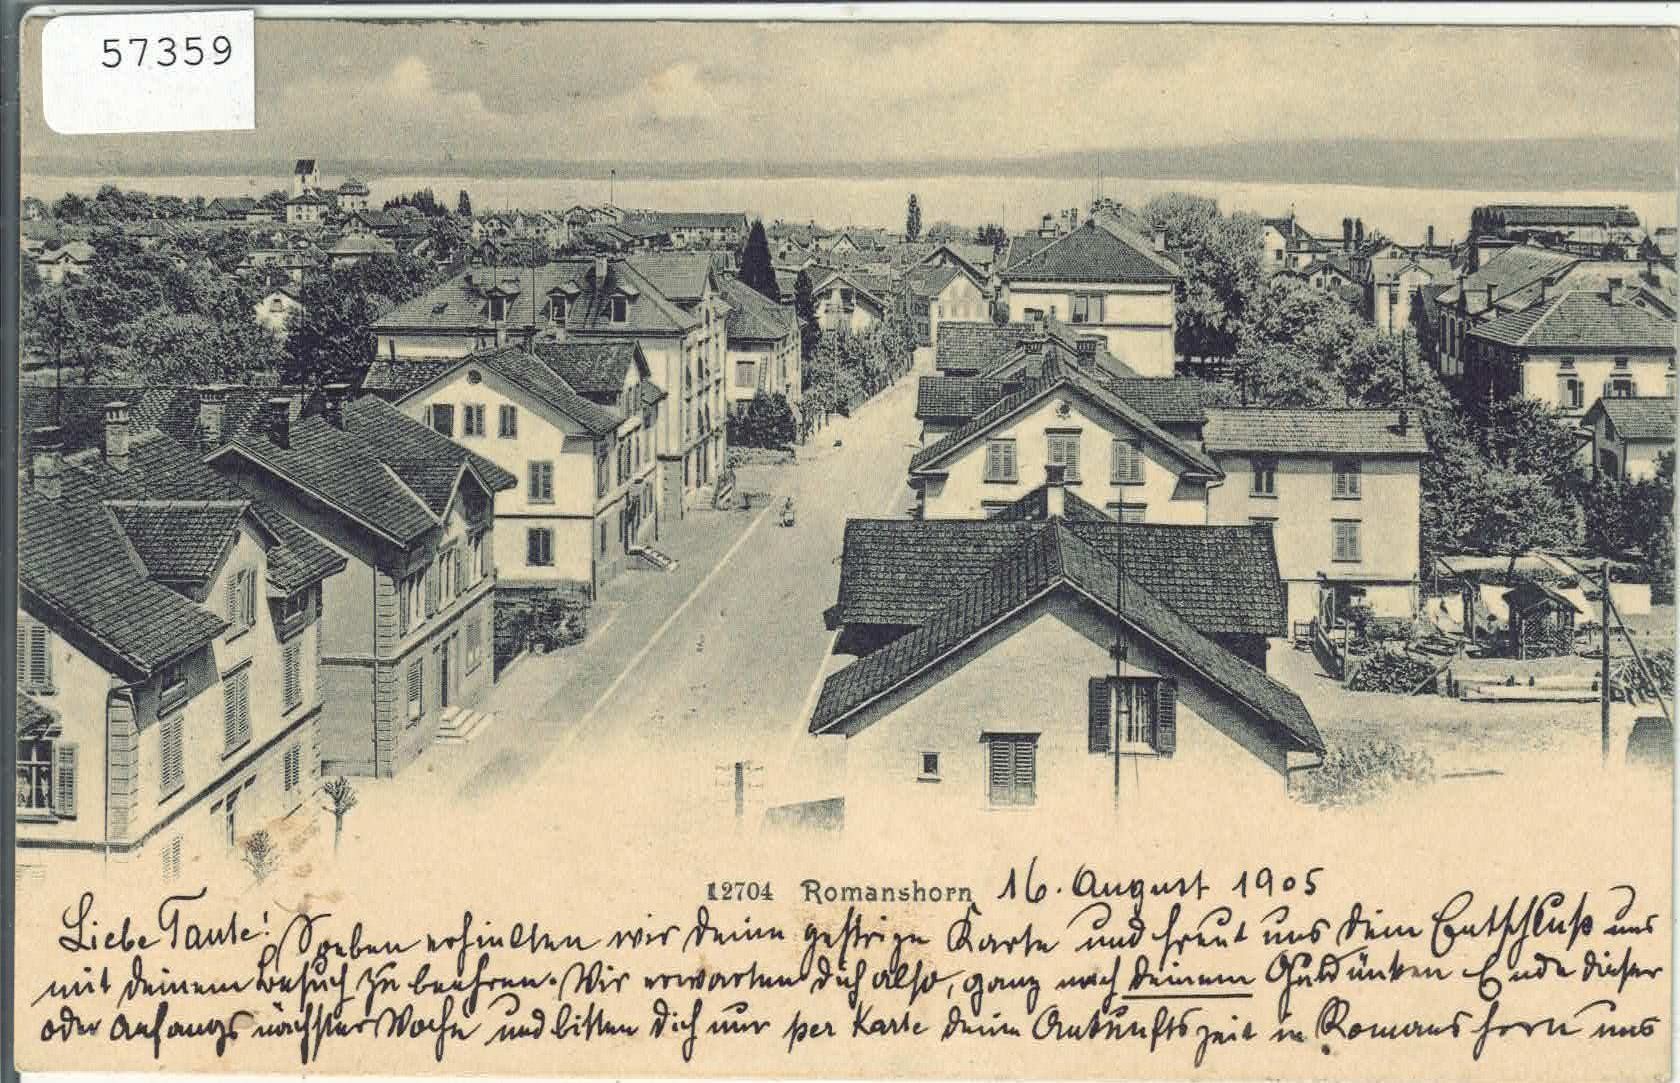 57359
12704 Romanshorn 16. August 1905
Liebe Tante! Soeben erhielten wir deine gestrige Karte und freut uns dein Entschluß uns
mit deinem Besuch zu beehren. Wir erwarten dich also, ganz nach deinem Gutdünken Ende dieser
oder Anfangs nächster Woche und bitten dich nur per Karte deine Ankunftszeit in Romanshorn uns